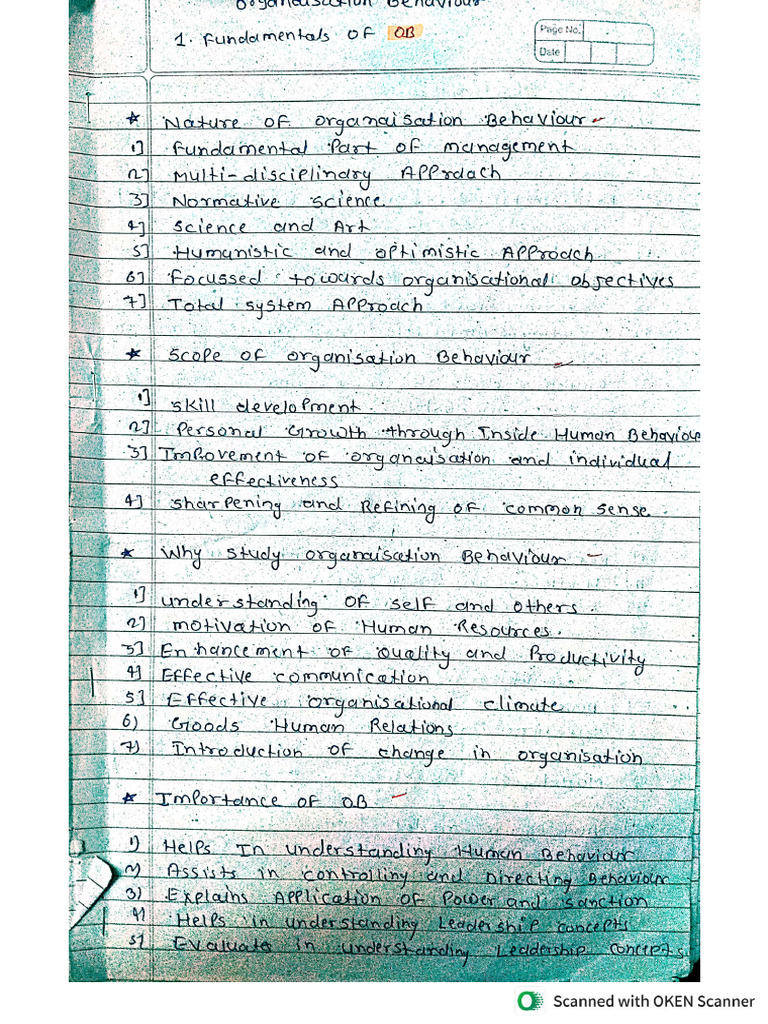 Organaisation Behaviour
1. Fundamentals OF OB
Page No.
Date
* Nature OF organaisation Behaviour
1] Fundamental Part OF management
2] Multi-disciplinary Approach
3] Normative Science
4] Science and Art
5] Humanistic and optimistic Approach
6] Focussed towards organisational objectives
7] Total system Approach
* Scope OF organisation Behaviour
1] Skill development
2] Personal Growth through Inside Human Behaviour
3] Impovement OF organaisation and individual
effectiveness
4] sharpening and Refining OF common sense
* Why study organaisation Behaviour
1] understanding OF self and others
2] motivation OF Human Resources.
3] Enhancement OF Quality and Productivity
4] Effective communication
5] Effective organisational climate
6) Goods Human Relations
7) Introduction OF change in organisation
* Importance OF OB
1) Helps In understanding Human Behaviour
2) Assists in controlling and Directing Behaviour
3) Explains Application OF Power and sanction
4) Helps in understanding Leadership concepts
5) Evaluate in understanding Leadership concepts
Scanned with OKEN Scanner